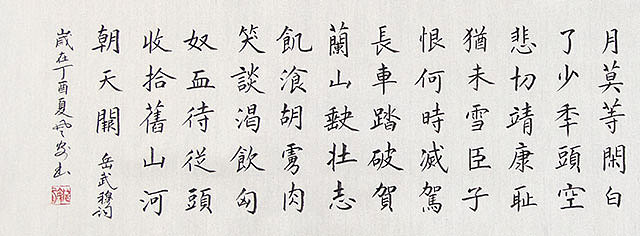 月莫等閑白
了少秊頭空
悲切靖康耻
猶未雪臣子
恨何時滅駕
長車踏破賀
蘭山缺壯志
飢湌胡虜肉
笑談渴飲匈
奴血待從頭
收拾舊山河
朝天闕
岳武穆詞
歲在丁酉夏